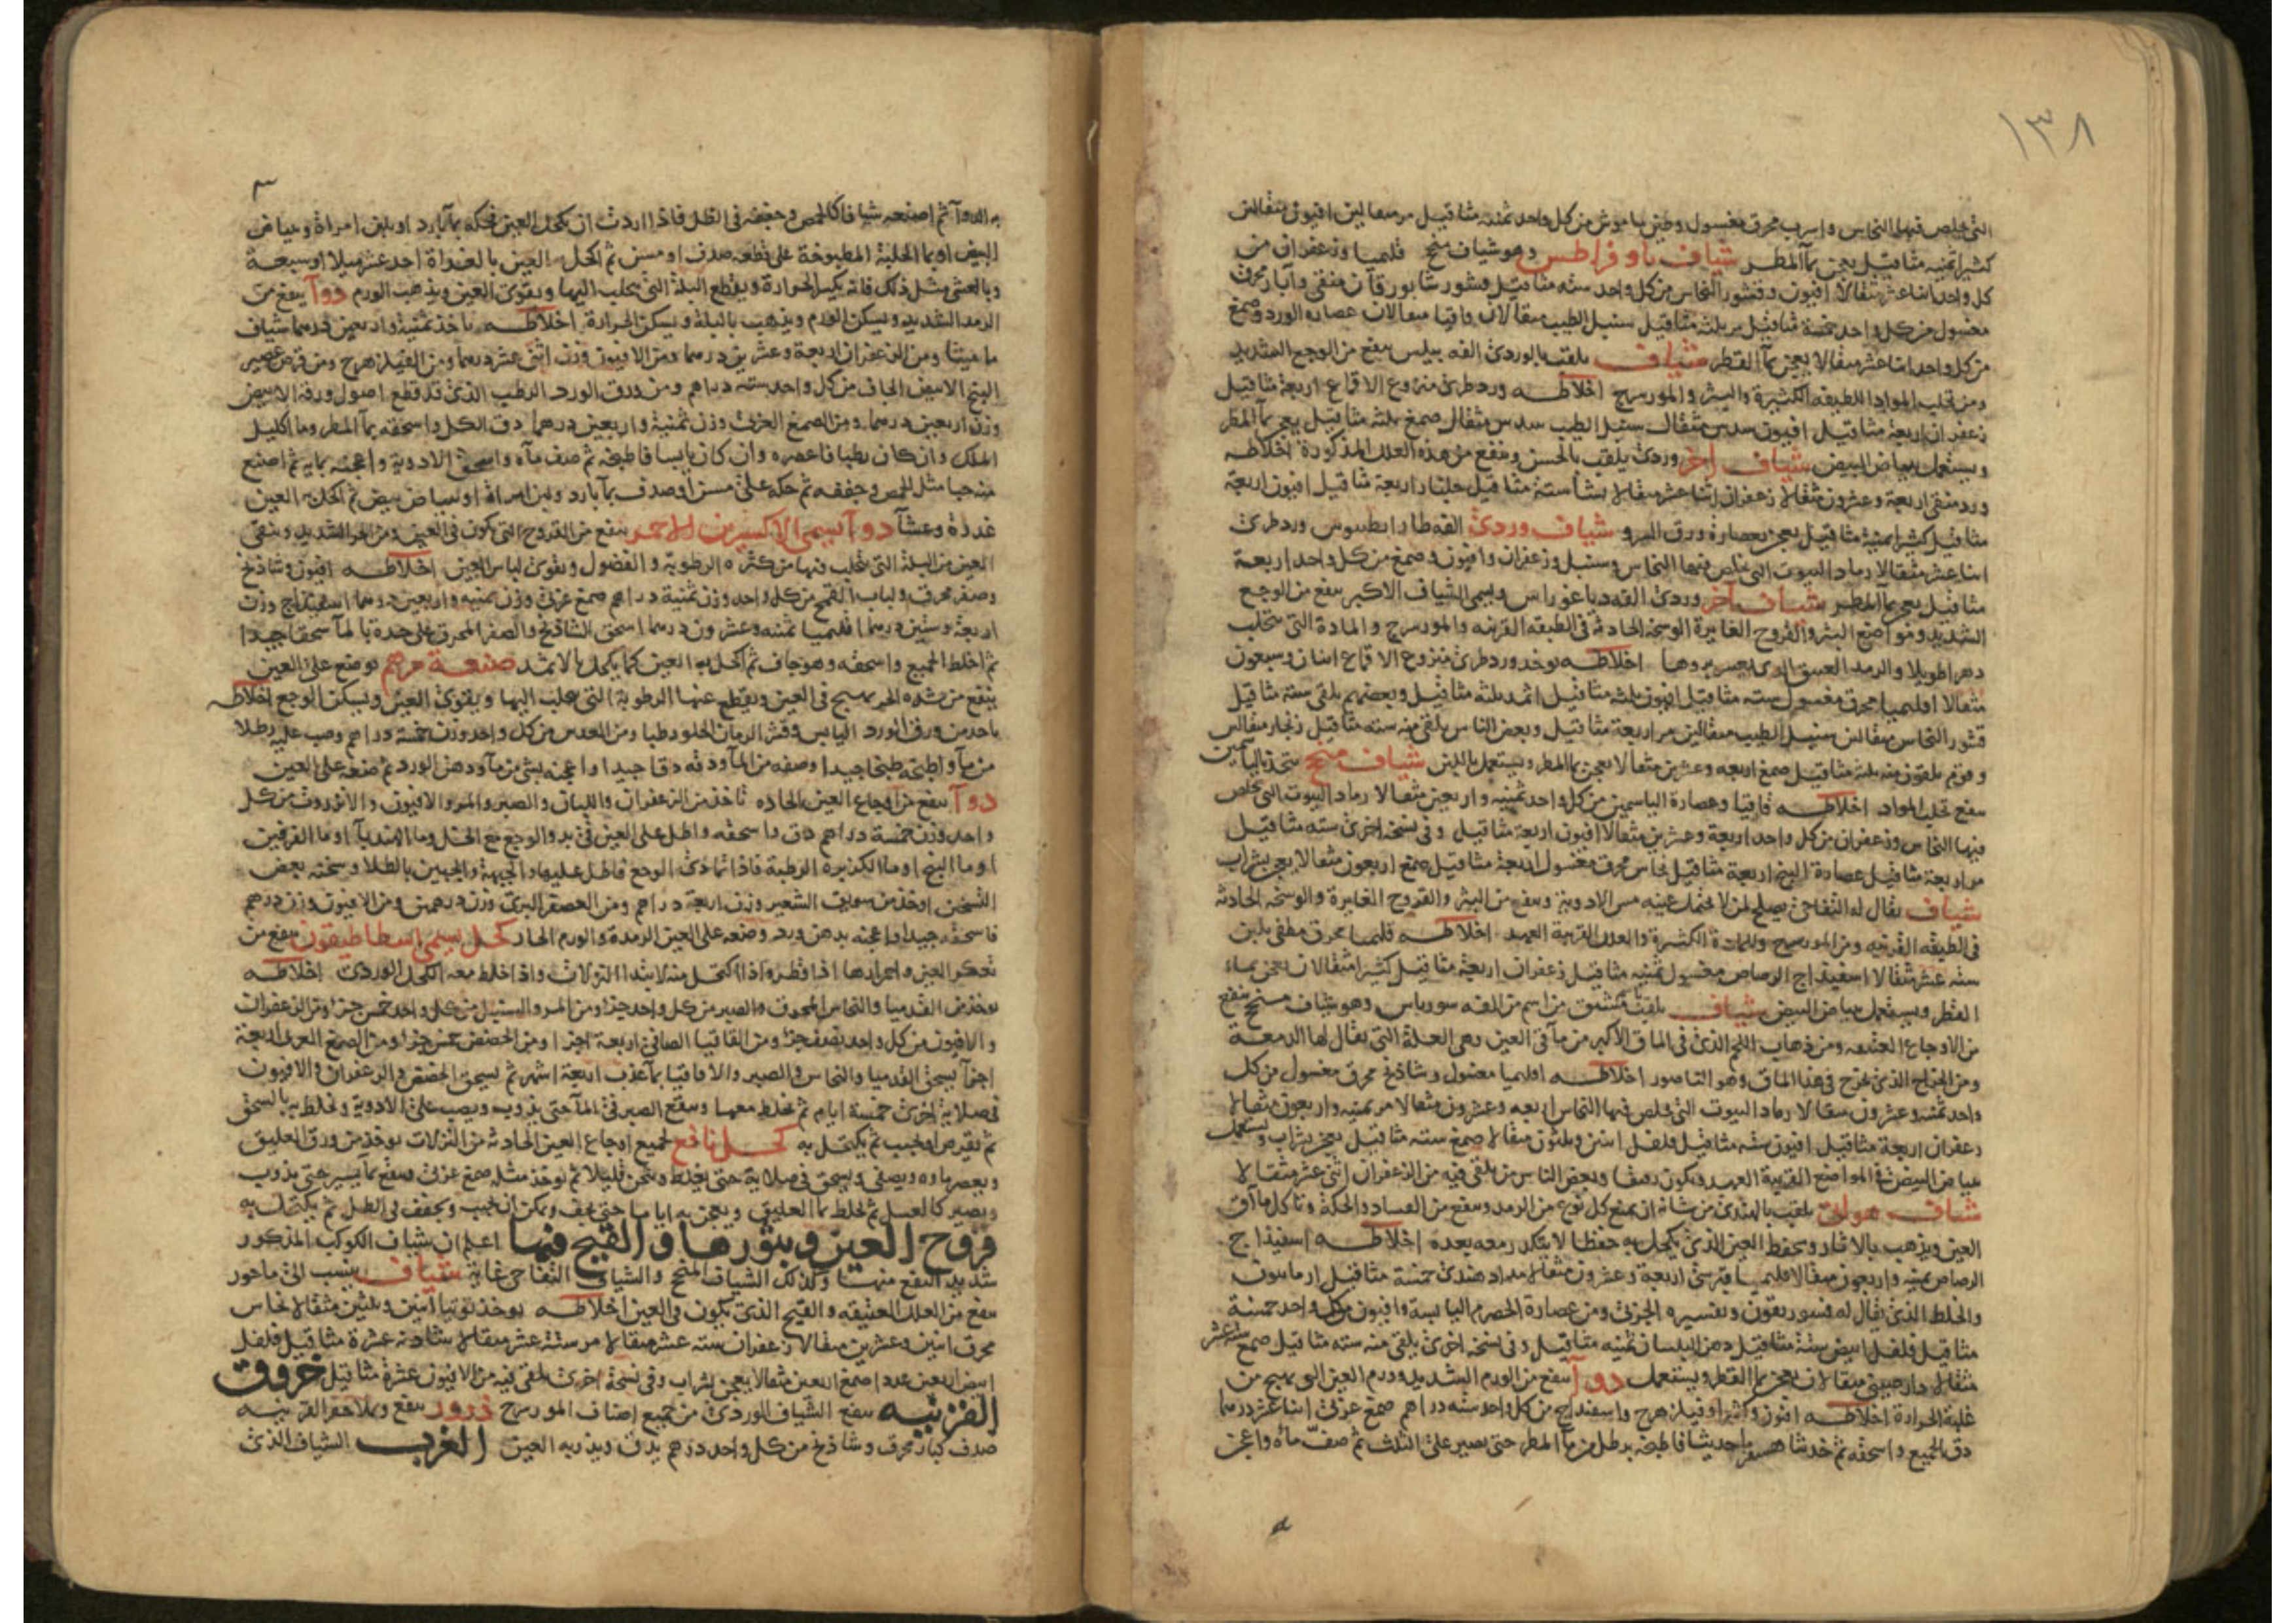 ١٣٨
التى يخلص فيها النحاس واسرب محرق مغسول وطين ساموش من كل واحد ثمنية مثاقيل مر مثقالين افيون مثقالين
كثيرا ثمنية مثاقيل يعجن بماء المطر شياف باوفراطس وهو شياف منجح قليميا وزعفران من
كل واحد اثنا عشر مثقالا افيون وقشور النحاس من كل واحد سته مثاقيل قشور شابورقان منقى وآبار محرق
مغسول من كل واحد خمسة مثاقيل مر ثلثة مثاقيل سنبل الطيب مثقالان واقاقيا مثقالان عصاره الورد وصمغ
من كل واحد اثنا عشر مثقالا يعجن بماء القطر شياف يلقب بالوردى الفه نيلس ينفع من الوجع الشديد
ومن تحلب المواد اللطيفة الكثيرة والبثر والمورسرج اخلاطه ورد طرى منزوع الاقماع اربعة مثاقيل
زعفران اربعة مثاقيل افيون سدس مثقال سنبل الطيب سدس مثقال صمغ ثلثة مثاقيل يعجن بماء المطر
ويستعمل ببياض البيض شياف اخر وردى يلقب بالحسن وينفع من هذه العلل المذكورة اخلاطه
ورد منقى اربعة وعشرون مثقالا زعفران اثنا عشر مثقالا نشا ستة مثاقيل جلنار اربعة مثاقيل افيون اربعة
مثاقيل كثيرا ثمنية مثاقيل يعجن بعصارة ورق المرو شياف وردى الفه طارانطينوس ورد طرى
اثنا عشر مثقالا رماد البيوت التى يخلص فيها النحاس وسنبل وزعفران وافيون وصمغ من كل واحد اربعة
مثاقيل يعجن بماء المطر شياف آخر وردى الفه دياغوراس ويسمى الشياف الاكبر ينفع من الوجع
الشديد ومواضع البثر والقروح الغايرة الوسخة الحادثة فى الطبقه القرنيه والمورسرج والمادة التى تتحلب
دهرا طويلا والرمد العتيق الذى يعسر بروها اخلاطه يوخذ ورد طرى منزوع الاقماع اثنان وسبعون
مثقالا اقليميا محرق مغسول سته مثاقيل افيون ثلثة مثاقيل اثمد ثلثة مثاقيل وبعضهم يلقى ستة مثاقيل
قشور النحاس مثقالين سنبل الطيب مثقالين مر اربعة مثاقيل وبعض الناس يلقى منه سته مثاقيل زنجار مثقالين
وقوم يلقون منه ثلثة مثاقيل صمغ اربعه وعشرين مثقالا يعجن بماء المطر ويستعمل باللبن شياف منجح يتخذ بالياسمين
ينفع تحلب المواد اخلاطه قاقيا وعصارة الياسمين من كل واحد ثمنيه واربعين مثقالا رماد البيوت التى يخلص
فيها النحاس وزعفران من كل واحد اربعة وعشرين مثقالا افيون اربعة مثاقيل وفى نسخه اخرى سته مثاقيل
مر اربعة مثاقيل عصارة البنج اربعة مثاقيل نحاس محرق مغسول اربعة مثاقيل صمغ اربعون مثقالا يعجن بشراب
شياف يقال له التفاحى يصلح لمن لا يحتمل عينه مس الادوية وينفع من البثر والقروح الغايرة والوسخه الحادثه
فى الطبقه القرنيه ومن المورسرج والمادة الكثيرة والعلل القريبة العهد اخلاطه قليميا محرق مطفى بلبن
سته عشر مثقالا اسفيداج الرصاص مغسول ثمنيه مثاقيل زعفران اربعة مثاقيل كثيرا مثقالان يعجن بماء
القطر ويستعمل ببياض البيض شياف يلقب من اسم من الفه سورياس وهو شياف منجح ينفع
من الاوجاع العتيقه ومن ذهاب اللحم الذى فى الماق الاكبر من ماقى العين وهى العلة التى يقال لها الدمعة
ومن الخراج الذى يخرج فى هذا الماق وهو الناصور اخلاطه اقليميا مغسول وشاذنج محرق مغسول من كل
واحد ثمنيه وعشرون مثقالا رماد البيوت التى يخلص فيها النحاس اربعه وعشرون مثقالا مر ثمنيه واربعون مثقالا
زعفران اربعة مثاقيل افيون سته مثاقيل فلفل اثنين وثلثون مثقالا صمغ سته مثاقيل يعجن بشراب ويستعمل
ببياض البيض فى المواضع القريبة العهد ويكون رقيقا وبعض الناس من يلقى فيه من الزعفران اثنى عشر مثقالا
شياف هولى يلقب بالهندى من شانه ان يمنع كل نوع من الرمد وينفع من الفساد والحكة وتاكل ماآق
العين ويذهب بالاثار ويحفظ العين الذى يكحل به حفظا لا يتكدر معه بعده اخلاطه اسفيذاج
الرصاص ثمنيه واربعون مثقالا قليميا قبرسى اربعة وعشرون مثقالا مداد هندى خمسة مثاقيل ارمانيون
والخلط الذى يقال له قنسوريقون وتفسيره الجزئ ومن عصارة الحصرم اليابسة وافيون من كل واحد خمسة
مثاقيل فلفل ابيض ستة مثاقيل دهن البلسان ثمنيه مثاقيل وفى نسخه اخرى يلقى منه سته مثاقيل صمغ ستة عشر
مثقالا دارصينى مثقالان يعجن بماء القطر ويستعمل دوآ ينفع من الورم الشديد وورم العين الذى يهيج من
غلبة الحرارة اخلاطه افيون وكثيرا وفيلزهرج واسفيداج من كل واحد سته دراهم صمغ عربى اثنا عشر درهما
دق الجميع واسحقه ثم خذ شاهسفرم حديثا فاطبخه برطل من ماء المطر حتى يصير على الثلث ثم صف ماءه واعجن
به الدوآ ثم اصنعه شيافا كالحمص وجففه فى الظل فاذا اردت ان تكحل العين فحكه بماء بارد او بلبن امراة وبياض
البيض او بماء الحلبة المطبوخة على قطعه صدف او مسن ثم اكحل به العين بالغداة احد عشر ميلا او سبعة
وبالعشى مثل ذلك فانه يكسر الحرارة ويقطع البلة التى تتحلب اليها ويقوى العين ويذهب الورم دوآ ينفع من
الرمد الشديد ويسكن الورم ويذهب بالبلة ويسكن الحرارة اخلاطه ياخذ ثمنية واربعين درهما شياف
ماميثا ومن الزعفران اربعة وعشرين درهما ومن الافيون وزن اثنى عشر درهما ومن الفيلزهرج ومن قرص عصير
البنج الابيض الجاف من كل واحد ستة دراهم ومن ورق الورد الرطب الذى قد قطع اصول ورقه الابيض
وزن اربعين درهما ومن الصمغ العربى وزن ثمنية واربعين درهما دق الكل واسحقه بماء المطر وماء اكليل
الملك وان كان رطبا فاعصره وان كان يابسا فاطبخه ثم صف ماءه واسحق الادوية واعجنه بمايه ثم اصنع
منه حبا مثل الحمص وجففه ثم حكه على مسن او صدف بماء بارد ولبن امراة او بياض بيض ثم اكحل به العين
غدوة وعشآ دوآ يسمى الاكسيرين الاحمر ينفع من القروح التى تكون فى العين ومن الحر الشديد وينقى
العين من البلة التى تتحلب فيها من كثره الرطوبة والفضول ويقوى لباس العين اخلاطه افيون وشاذنج
وصفر محرق ولباب القمح من كل واحد وزن ثمنية دراهم صمغ عربى وزن ثمنيه واربعين درهما اسفيداج وزن
اربعة وستين درهما اقليميا ثمنيه وعشرون درهما اسحق الشاذنج والصفر المحرق على حدة بالمآ سحقا جيدا
ثم اخلط الجميع واسحقه وهو جاف ثم اكحل به العين كما يكحل بالاثمد صنعة مرهم يوضع على العين
ينفع من شده الحر يهيج فى العين ويقطع عنها الرطوبة التى تتحلب اليها ويقوى العين ويسكن الوجع اخلاطه
ياخذ من ورق الورد اليابس وقشر الرمان الحلو رطبا ومن العدس من كل واحد وزن خمسة دراهم وصب عليه رطلا
من مآ واطبخه طبخا جيدا وصفه من المآ ودقه دقا جيدا واعجنه بشئ من مآ ودهن الورد ثم ضعه على العين
دوآ ينفع من اوجاع العين الحاده تاخذ من الزعفران واللبان والصبر والمر والافيون والانزروت من كل
واحد وزن خمسة دراهم دق واسحقه واطل على العين فى بدو الوجع مع الخل وما الهندبآ او ما القرفين
او ما البنج او ما الكزبره الرطبة فاذا تمادى الوجع فاطل عليها والجبهة والجبين بالطلا وسخنه بعض
التسخين او خذ من سويق الشعير وزن اربعة دراهم ومن العصفر البرى وزن درهمين ومن الافيون وزن درهم
فاسحقه جيدا واعجنه بدهن ورد وضعه على العين الرمدة والورم الحار كحل يسمى اسطاطيقون ينفع من
تعكر العين واحمرارها اذا قطر واذا اكتحل منه لابتدا النزلات واذا خلط معه الكحل الوردى اخلاطه
يوخذ من القدميا والنحاس المحرق والصبر من كل واحد جزا ومن المر والسنبل من كل واحد خمس جزا ومن الزعفران
والافيون من كل واحد نصف جزا ومن القاقيا الصافى اربعة اجزا ومن الحضض خمس جزا ومن الصمغ العربى اربعة
اجزآ يسحق القدميا والنحاس والصبر والاقاقيا بمآ عذب اربعة اشهر ثم يسحق الحضض والزعفران والافيون
فى صلاية اخرى خمسة ايام ثم يخلط معها وينقع الصبر فى المآ حتى يذوب ويصب على الادوية ويخلط به بالسحق
ثم يقرص او يحبب ثم يكتحل به كحل نافع لجميع اوجاع العين الحادثه من النزلات يوخذ من ورق العليق
ويعصر ماوه ويصفى ويسحق فى صلاية حتى يغلظ ويثخن قليلا ثم يوخذ مثله صمغ عربى وينقع بمآ يسير حتى يذوب
ويصير كالعسل ثم يخلط بما العليق ويعجن به اياما حتى يجف ويمكن ان يحبب ويجفف فى الظل ثم يكتحل به
قروح العين وبثورها والقيح فيها اعلم ان شياف الكوكب المذكور
شديد النفع منها وكذلك الشياف المنجح والشياف التفاحى غاية شياف ينسب الى ماحور
ينفع من العلل العتيقه والقيح الذى يكون فى العين اخلاطه يوخذ توتيا اثنين وثلثين مثقالا نحاس
محرق اثنين وعشرين مثقالا زعفران سته عشر مثقالا مر ستة عشر مثقالا شادنه عشرة مثاقيل فلفل
ابيض اربعين عددا صمغ اربعين مثقالا يعجن بشراب وفى نسخة اخرى يلقى فيه من الافيون عشرة مثاقيل خروق
القرنيه ينفع الشياف الوردى من جميع اصناف المورسرج ذرور ينفع وبلاحفر القرنيه
صدف كبار محرق وشاذنج من كل واحد درهم يدق ويذر به العين الغرب الشياف الذى